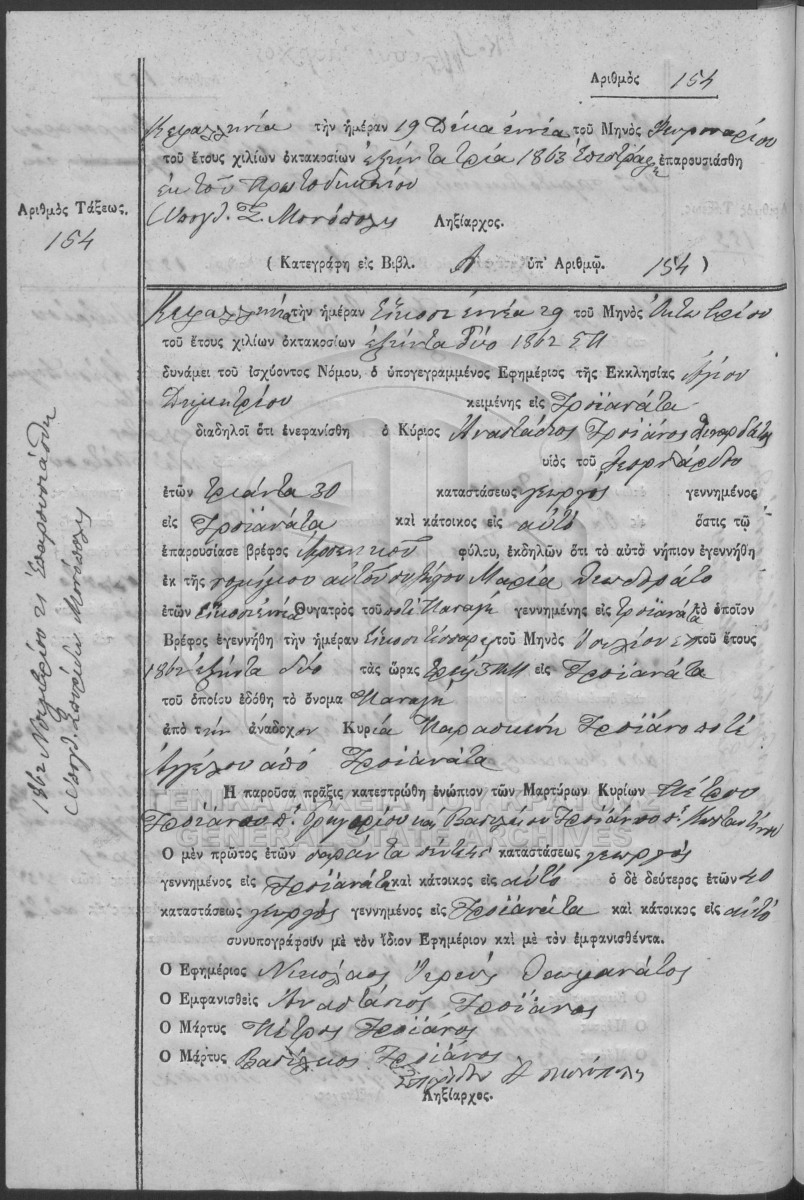 Ἀριθμὸς 154
Κεφαλληνία τὴν ἡμέραν 19 Δέκα ἐννέα τοῦ Μηνὸς Φευρουαρίου
τοῦ ἔτους χιλίων ὀκτακοσίων ἑξήντα τρία 1863 ἐπαρουσιάσθη
ἐκ τοῦ Πρωτοδικείου
Ἀριθμὸς Τάξεως.
154
Σ. Μονόπολης Ληξίαρχος.
( Κατεγράφη εἰς Βιβλ. Α ὑπ' Ἀριθμῷ. 154 )
Κεφαλληνία τὴν ἡμέραν Εἴκοσι ἐννέα 29 τοῦ Μηνὸς Ὀκτωβρίου
τοῦ ἔτους χιλίων ὀκτακοσίων ἑξήντα δύο 1862 ΕΠ
δυνάμει τοῦ ἰσχύοντος Νόμου, ὁ ὑπογεγραμμένος Ἐφημέριος τῆς Ἐκκλησίας Ἁγίου
Δημητρίου κειμένης εἰς Τροϊανάτα
διαδηλοῖ ὅτι ἐνεφανίσθη ὁ Κύριος Ἀναστάσιος Τροϊάνος
υἱὸς τοῦ
ἐτῶν τριάντα 30 καταστάσεως γεωργός γεννημένος
εἰς Τροϊανάτα καὶ κάτοικος εἰς αὐτό ὅστις τῷ
ἐπαρουσίασε βρέφος Ἀρσενικοῦ φύλου, ἐκδηλῶν ὅτι τὸ αὐτὸ νήπιον ἐγεννήθη
ἐκ τῆς νομίμου αὐτοῦ συζύγου Μαρία Θεοδοράτο
ἐτῶν Εἴκοσι ἐννέα Θυγατρὸς τοῦ ποτὲ Παναγῆ γεννημένης εἰς Τροϊανάτα τὸ ὁποῖον
Βρέφος ἐγεννήθη τὴν ἡμέραν Εἴκοσι τέσσαρες τοῦ Μηνὸς Ἰουλίου ΕΠ τοῦ ἔτους
1862 ἑξήντα δύο τὰς ὥρας τρεῖς 3 ΠΜ εἰς Τροϊανάτα
τοῦ ὁποίου ἐδόθη τὸ ὄνομα Παναγῆ
ἀπὸ τὴν ἀνάδοχον Κυρία Παρασκευή Τροϊάνο ποτὲ
Ἀγγέλου ἀπό Τροϊανάτα
Ἡ παροῦσα πρᾶξις κατεστρώθη ἐνώπιον τῶν Μαρτύρων Κυρίων Πέτρου
Τροϊάνου π. Γρηγορίου καὶ Βασιλείου Τροϊάνο π. Κωσταντίνου
Ὁ μὲν πρῶτος ἐτῶν σαράντα πέντε 45 καταστάσεως γεωργός
γεννημένος εἰς Τροϊανάτα καὶ κάτοικος εἰς αὐτό ὁ δὲ δεύτερος ἐτῶν 40
καταστάσεως γεωργός γεννημένος εἰς Τροϊανάτα καὶ κάτοικος εἰς αὐτό
συνυπογράφουν μὲ τὸν ἴδιον Ἐφημέριον καὶ μὲ τὸν ἐμφανισθέντα.
Ὁ Ἐφημέριος Νικόλαος Ἱερεύς Θεοφανάτος
Ὁ Ἐμφανισθεὶς Ἀναστάσιος Τροϊάνος
Ὁ Μάρτυς Πέτρος Τροϊάνος
Ὁ Μάρτυς Βασίλειος Τροϊάνος
Σπυρίδων Μονόπολης
Ληξίαρχος.
1862 Νοεμβρίου 21 Ἐπαρουσιάσθη
Σπυρίδων Μονόπολης
ΓΕΝΙΚΑ ΑΡΧΕΙΑ ΤΟΥ ΚΡΑΤΟΥΣ
GENERAL STATE ARCHIVES